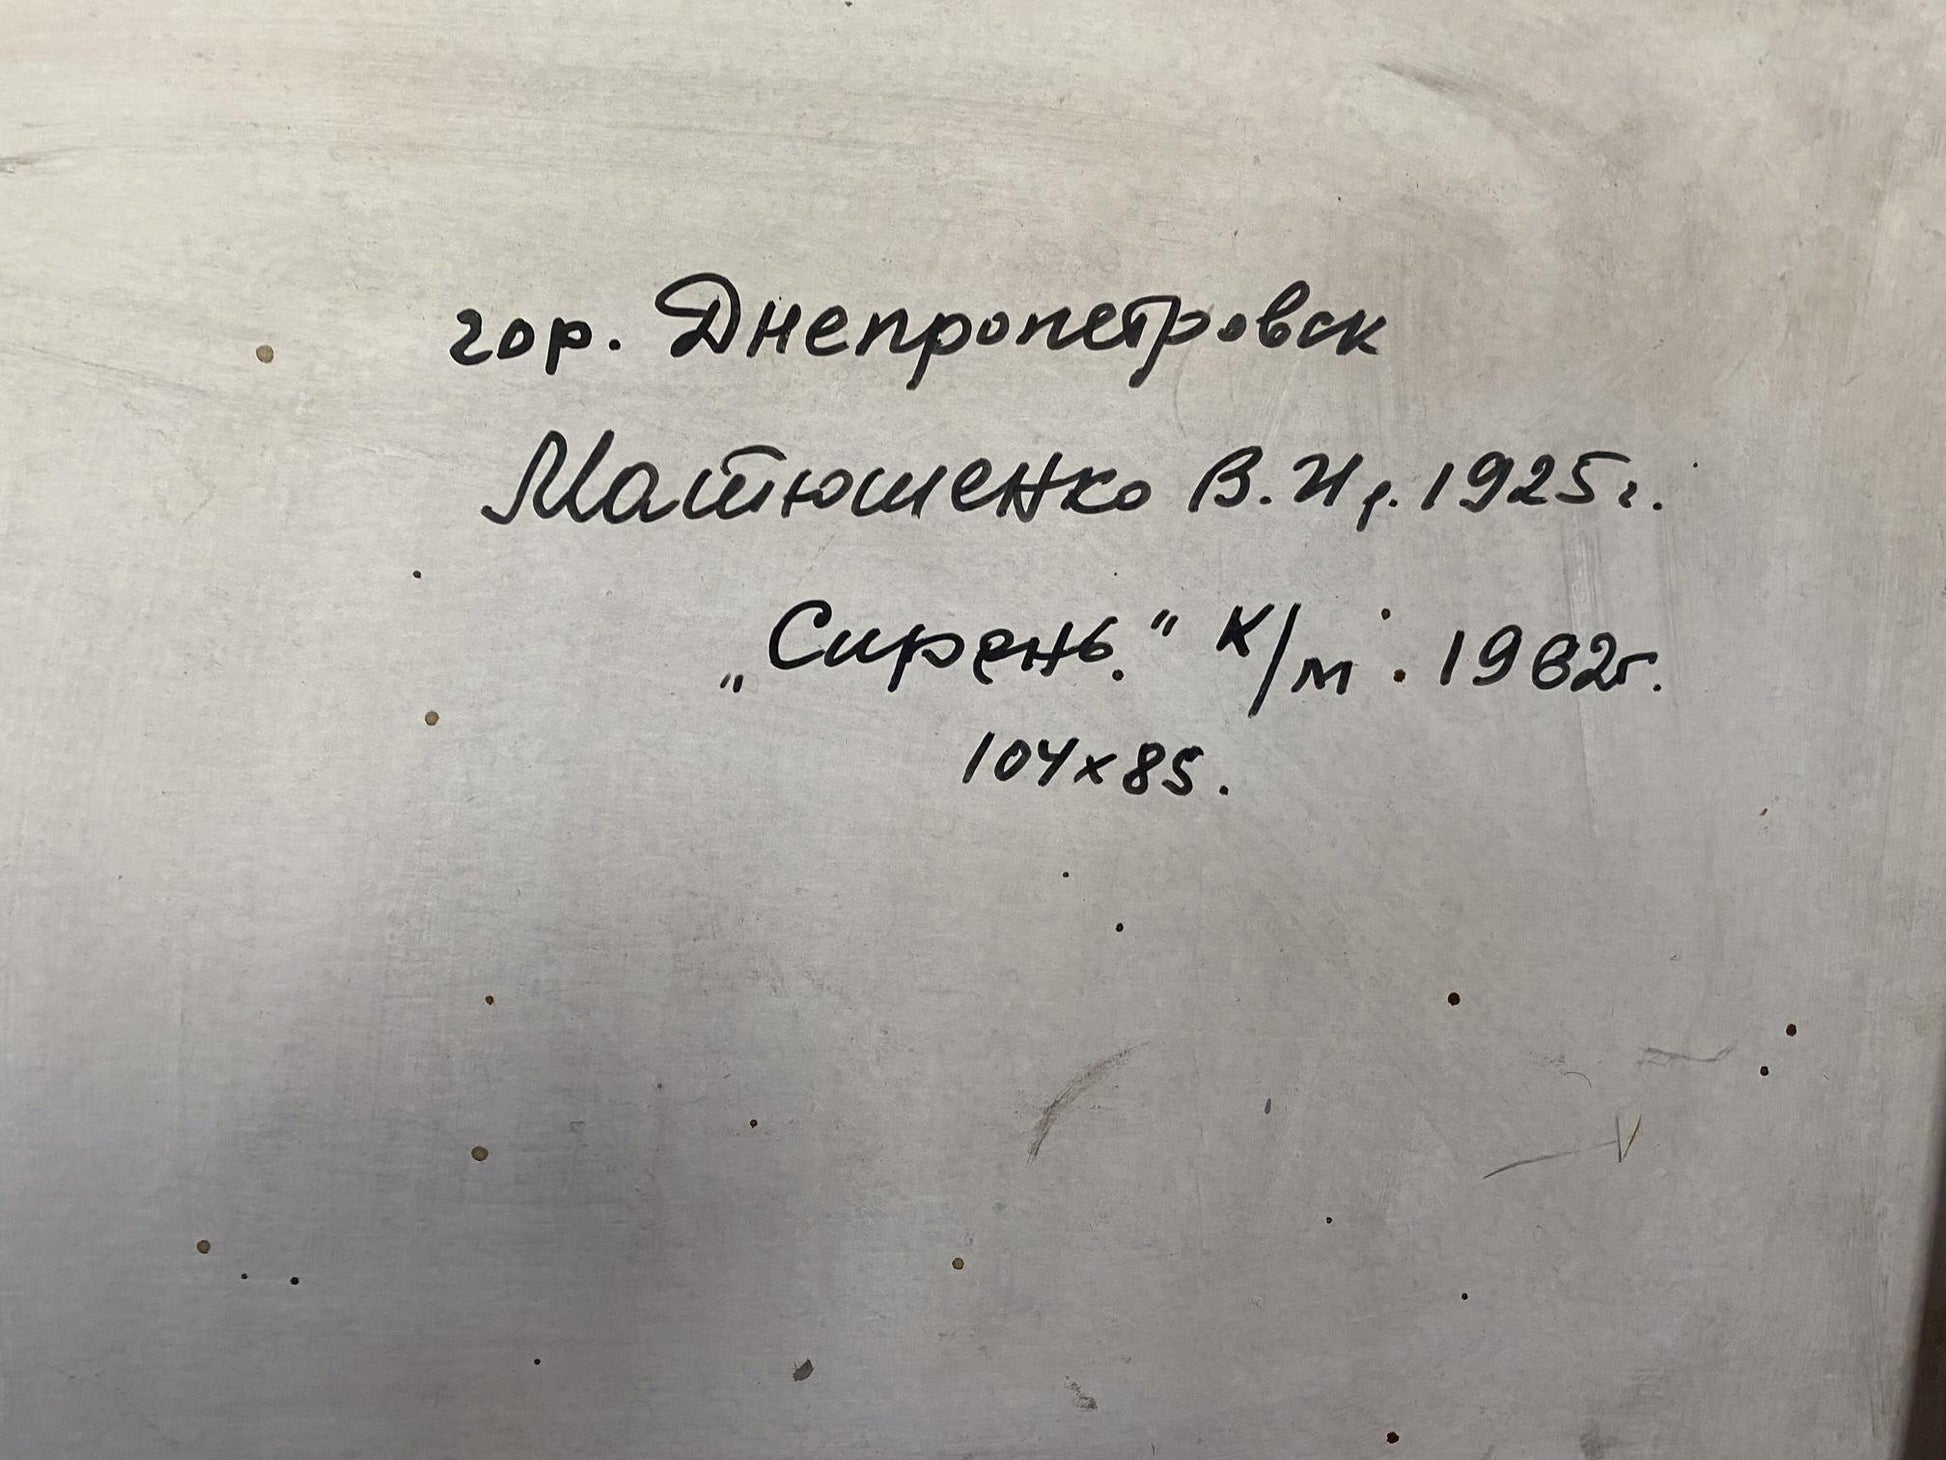 гор. Днепропетровск
Матюшенко В. И р. 1925 г.
„Сирень." к/м. 1962г.
104х85.